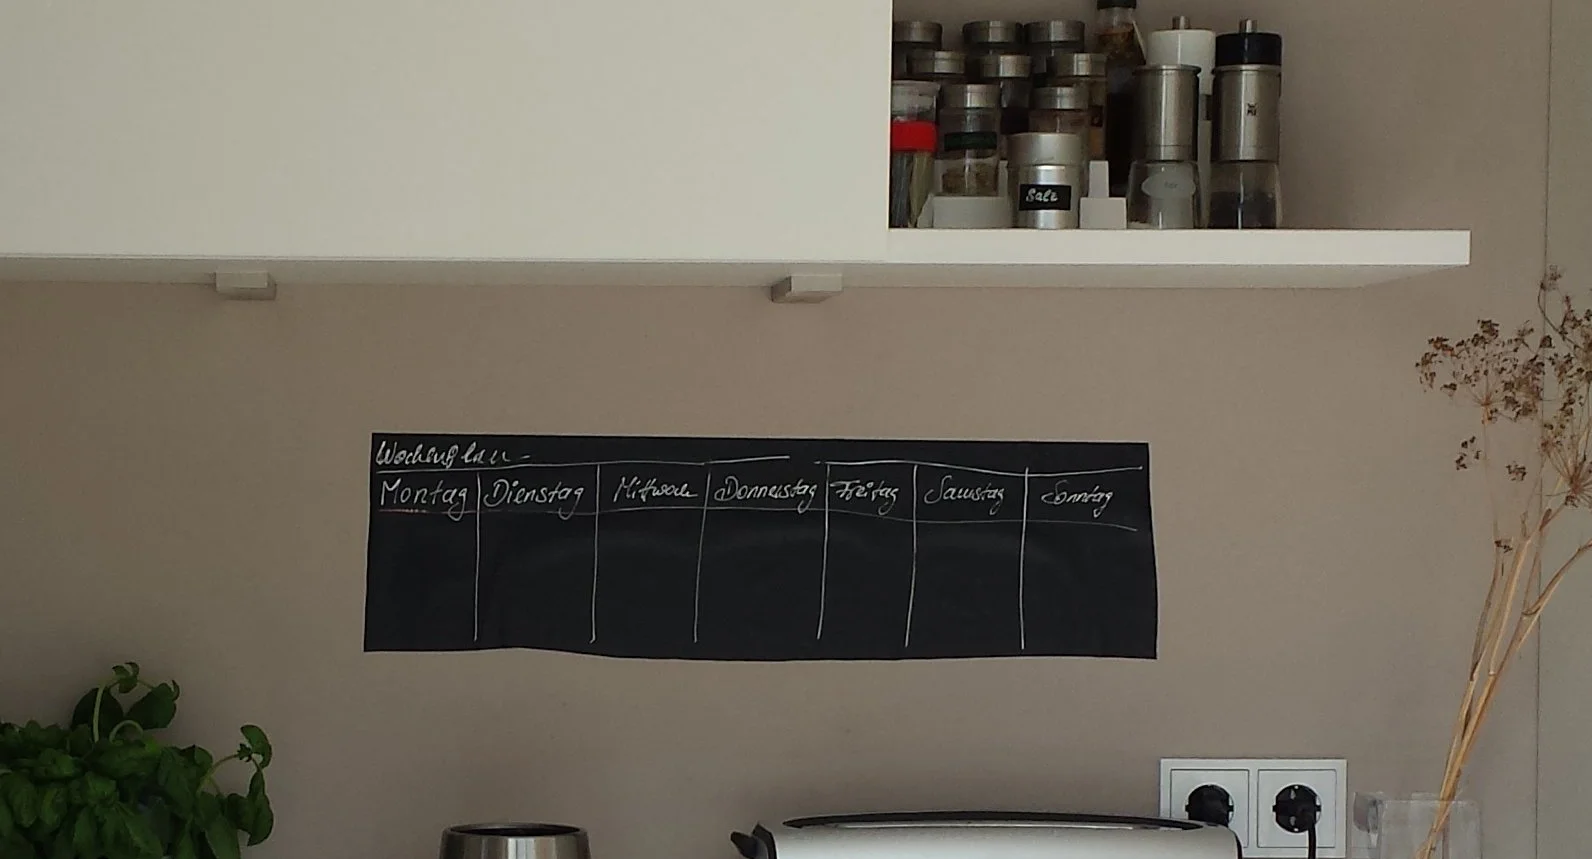 Salz
Wochenplan
Montag Dienstag Mittwoch Donnerstag Freitag Samstag Sonntag